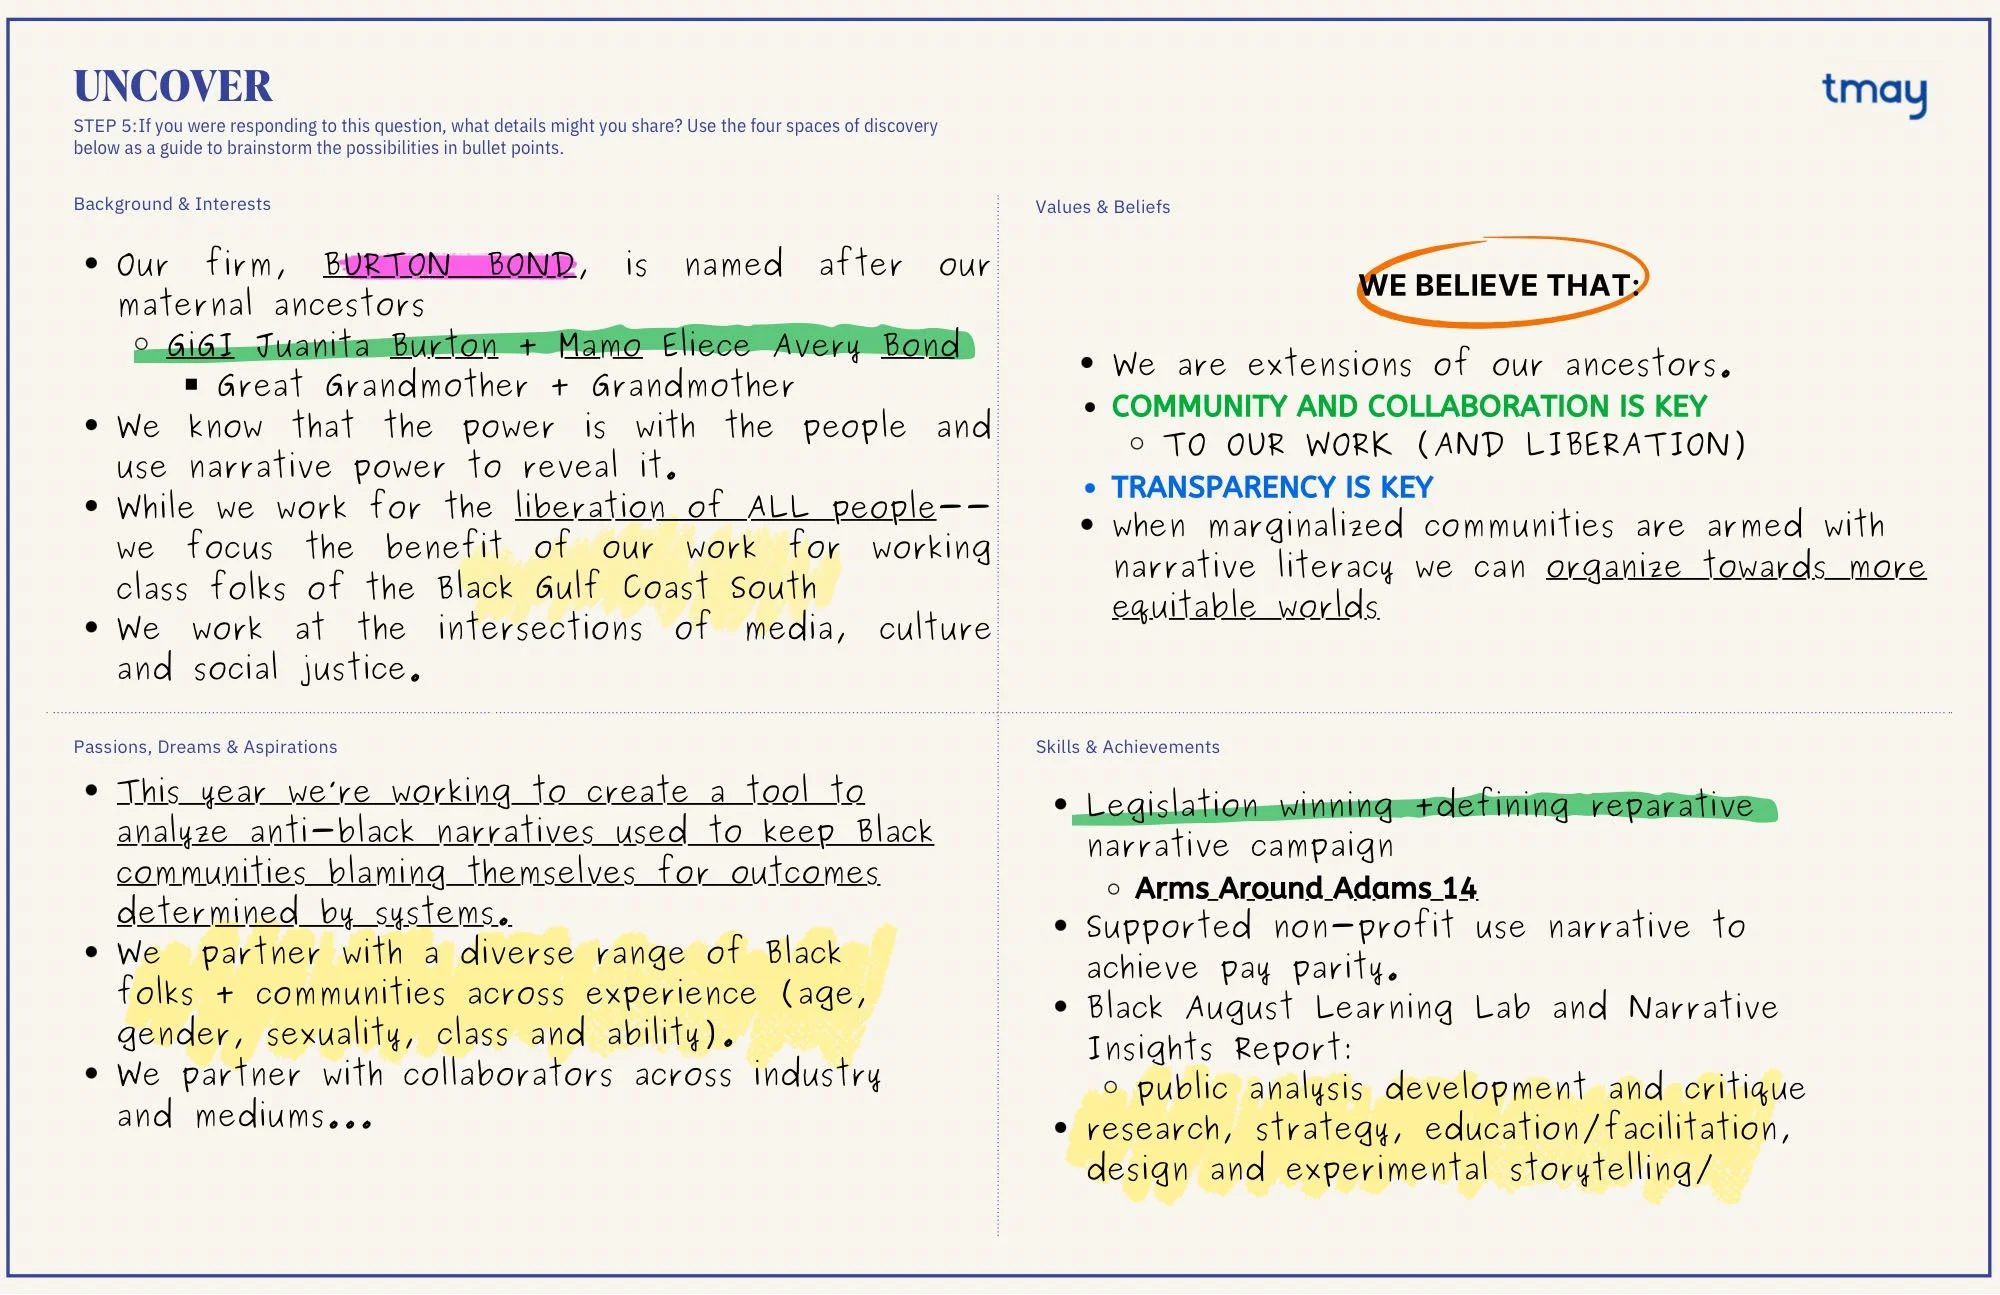 UNCOVER
tmay
STEP 5:If you were responding to this question, what details might you share? Use the four spaces of discovery
below as a guide to brainstorm the possibilities in bullet points.
Background & Interests
• Our firm, BURTON BOND, is named after our
maternal ancestors
○ GiGI Juanita Burton + Mamo Eliece Avery Bond
▪ Great Grandmother + Grandmother
• We know that the power is with the people and
use narrative power to reveal it.
• While we work for the liberation of ALL people--
we focus the benefit of our work for working
class folks of the Black Gulf Coast South
• We work at the intersections of media, culture
and social justice.
Values & Beliefs
WE BELIEVE THAT:
• We are extensions of our ancestors.
• COMMUNITY AND COLLABORATION IS KEY
○ TO OUR WORK (AND LIBERATION)
• TRANSPARENCY IS KEY
• when marginalized communities are armed with
narrative literacy we can organize towards more
equitable worlds
Passions, Dreams & Aspirations
• This year we're working to create a tool to
analyze anti-black narratives used to keep Black
communities blaming themselves for outcomes
determined by systems.
• We partner with a diverse range of Black
folks + communities across experience (age,
gender, sexuality, class and ability).
• We partner with collaborators across industry
and mediums...
Skills & Achievements
• Legislation winning +defining reparative
narrative campaign
○ Arms Around Adams 14
• Supported non-profit use narrative to
achieve pay parity.
• Black August Learning Lab and Narrative
Insights Report:
○ public analysis development and critique
• research, strategy, education/facilitation,
design and experimental storytelling/